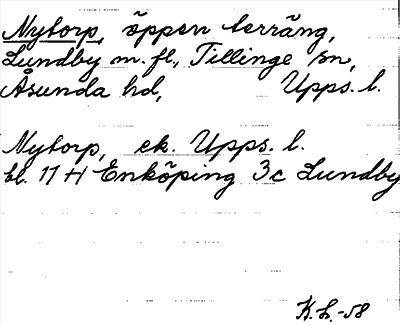 Nytorp, öppen terräng,
Lundby m. fl., Tillinge sn,
Åsunda hd, Upps. l.
Nytorp, ek. Upps. l.
bl. 11 H Enköping 3c Lundby
K. L. -58